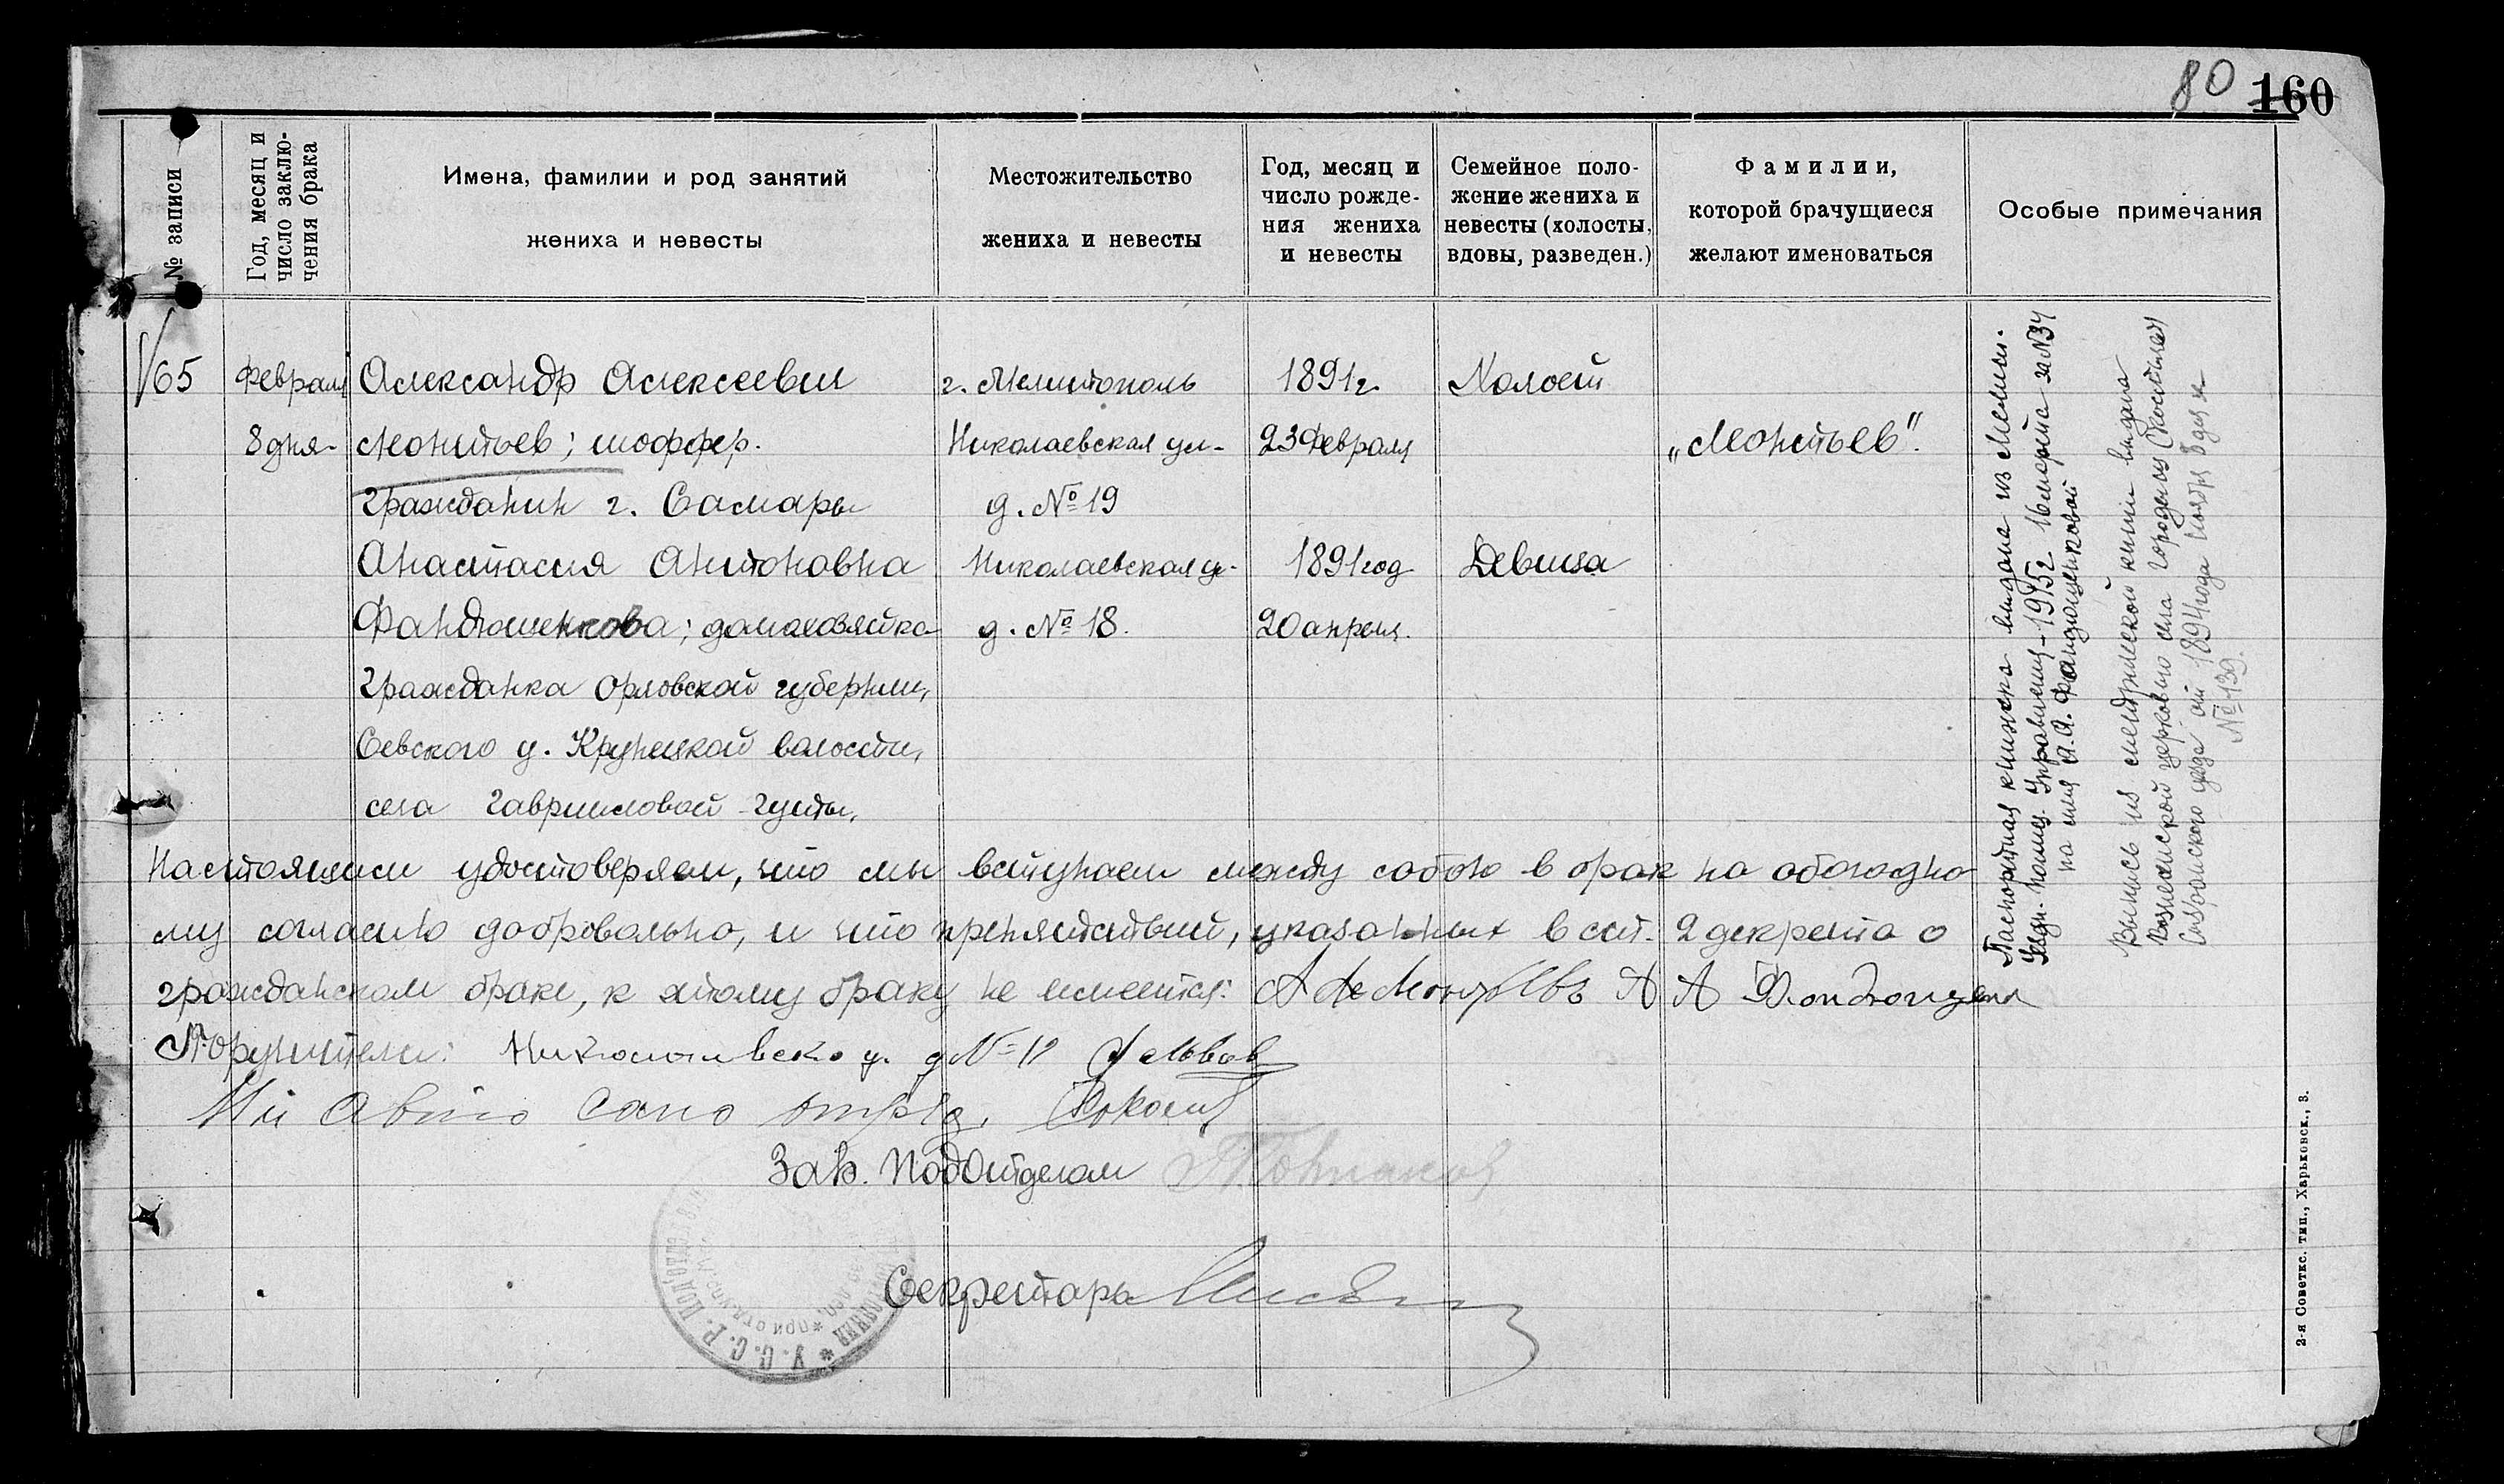 80 160
№ записи
Год, месяц и
число заклю-
чения брака
Имена, фамилии и род занятий
жениха и невесты
Местожительство
жениха и невесты
Год, месяц и
число рожде-
ния жениха
и невесты
Семейное поло-
жение жениха и
невесты (холосты,
вдовы, разведен.)
Фамилии,
которой брачущиеся
желают именоваться
Особые примечания
65
Февраля
8 дня
Александр Алексеевич
Леонтьев; шоффер.
гражданин г. Самары
Анастасия Антоновна
Фандюшенкова; домохозяйка
гражданка Орловской губернии,
Севского у. Крупецкой волости,
села Гавриловой Гуты,
г. Мелитополь
Николаевская ул-
д. № 19
Николаевская у-
д. № 18.
1891 г.
23 Февраля
1891 год
20 апреля.
Холост
Девица
„Леонтьев".
Паспортная книжка выдана из Мелит.
Уездн. Полиц. Управления - 1915 г. 16 марта за № 34
на имя А. А. Фандющенковой
Выпись из метрической книги выдана
Вознесенской церковью села Городища (Костычей)
Сызранского уезда от 1894 года Ноября 8 дня
№ 139.
Настоящим удостоверяем, что мы вступаем между собою в брак по обоюдно
му согласию добровольно, и что препятствий, указанных в ст. 2 декрета о
гражданском браке, к этому браку не имеется:
Поручители: д № Львов
Зав. Подотделом
Секретарь
У. С. С. Р. Подотдел
2-я Советкс. тип., Харьковск., 3.